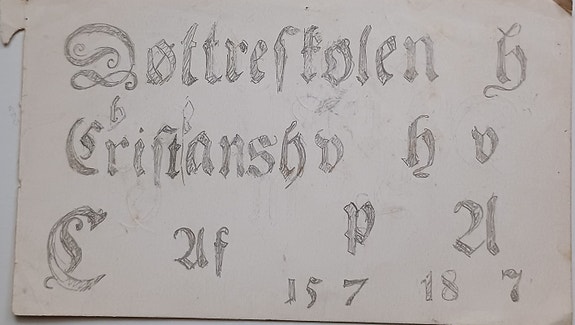 Døttreskolen h
h
Cristianshv h v
C Af P A
15 7 18 7